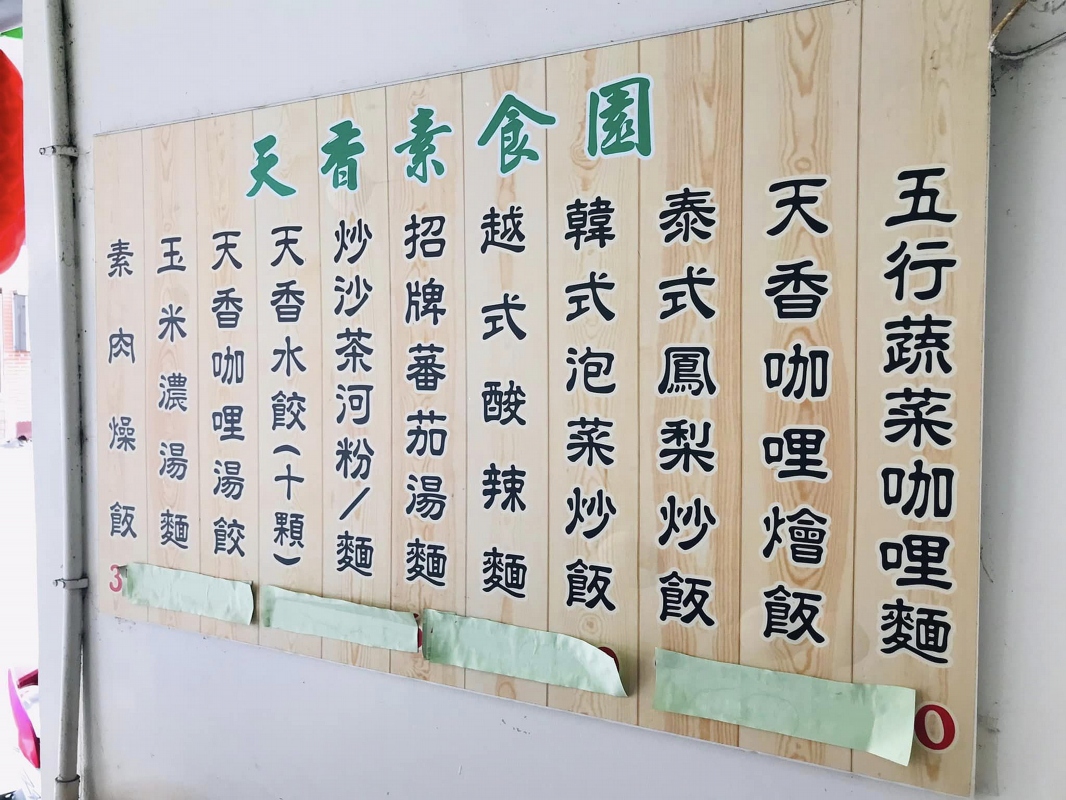 天香素食園
五行蔬菜咖哩麵
天香咖哩燴飯
泰式鳳梨炒飯
韓式泡菜炒飯
越式酸辣麵
招牌蕃茄湯麵
炒沙茶河粉/麵
天香水餃(十顆)
天香咖哩湯餃
玉米濃湯麵
素肉燥飯
3
0